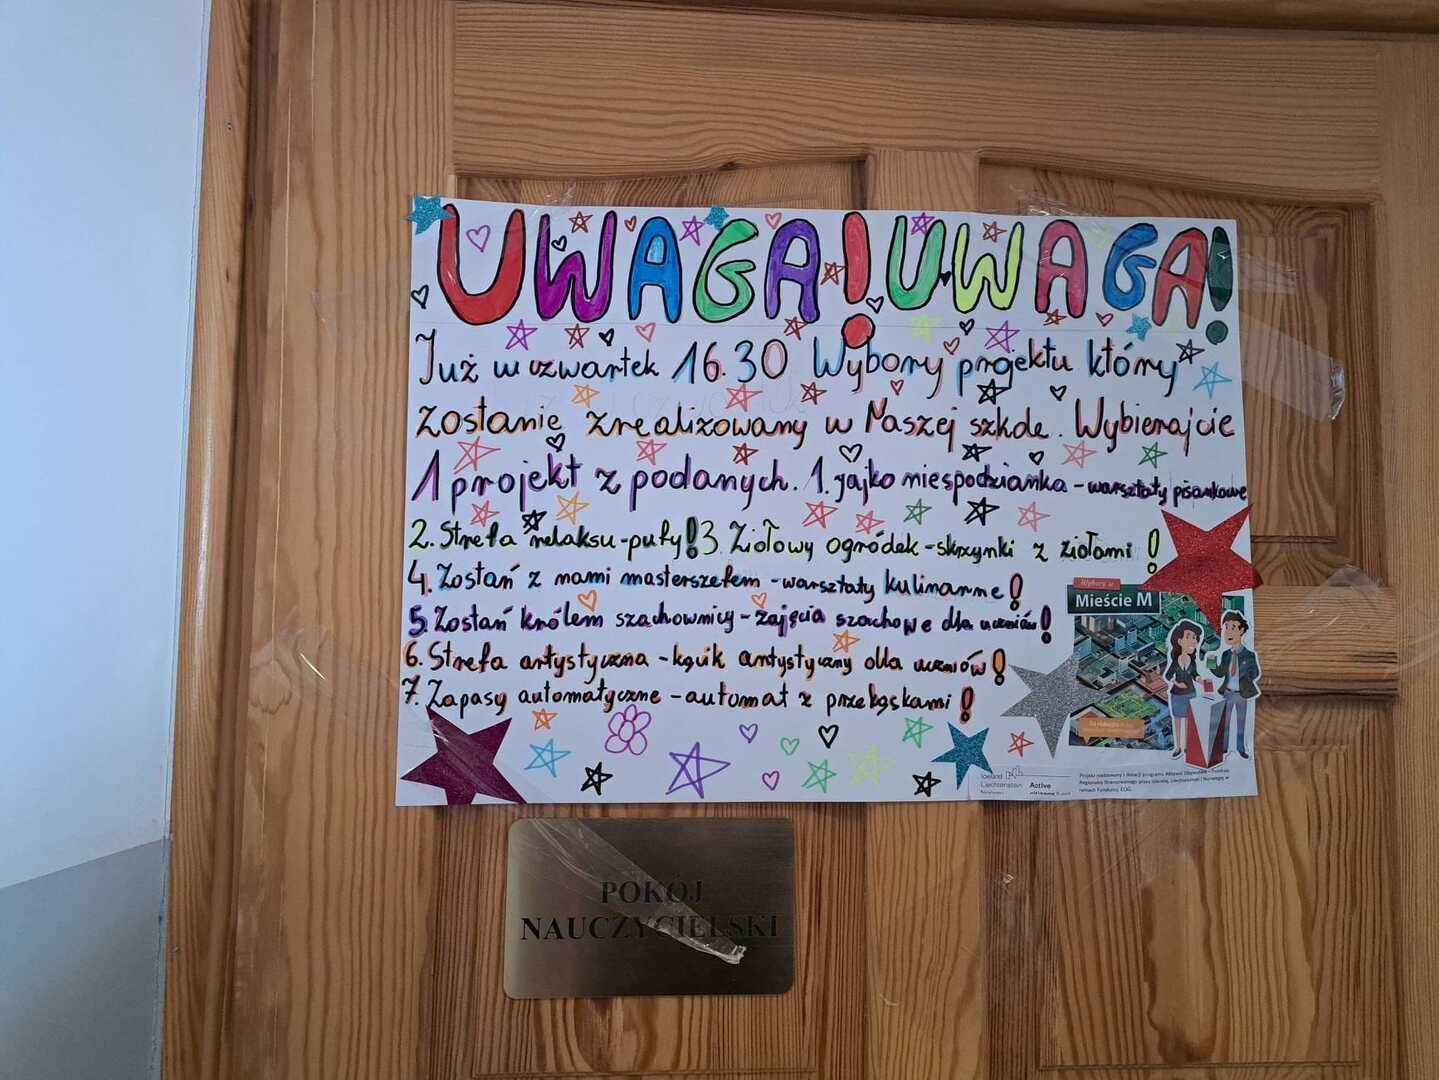 UWAGA! UWAGA!
Już w czwartek 16.30 Wybory projektu który
zostanie zrealizowany w Naszej szkole. Wybierajcie
1 projekt z podanych. 1. jajko niespodzianka - warsztaty pisankowe
2. Strefa relaksu - pufy! 3. Ziołowy ogródek - skrzynki z ziołami!
4. Zostań z nami masterszefem - warsztaty kulinarne!
5. Zostań królem szachownicy - zajęcia szachowe dla uczniów!
6. Strefa artystyczna - kącik artystyczny dla uczniów!
7. Zapasy automatyczne - automat z przekąskami!
Wybory w
Mieście M
Iceland
Liechtenstein Active
Norway
Projekt realizowany z dotacji programu Aktywni Obywatele – Fundusz
Regionalny finansowanego przez Islandię, Liechtenstein i Norwegię w
ramach Funduszy EOG.
POKÓJ
NAUCZYCIELSKI